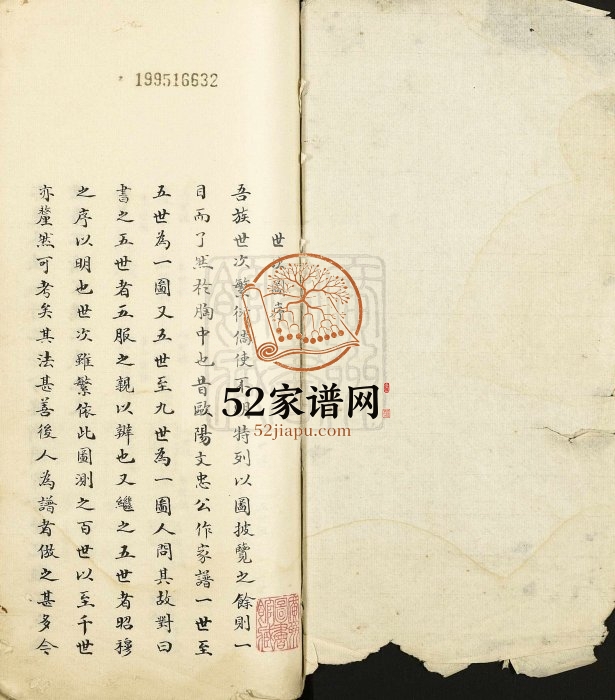 199516632
世次圖考
吾族世次繁衍倘使不明特列以圖披覽之餘則一
目而了然於胸中也昔歐陽文忠公作家譜一世至
五世為一圖又五世至九世為一圖人問其故對曰
書之五世者五服之親以辨也又繼之五世者昭穆
之序以明也世次雖繁依此圖測之百世以至千世
亦釐然可考矣其法甚善後人為譜者倣之甚多今
52家谱网
52jiapu.com